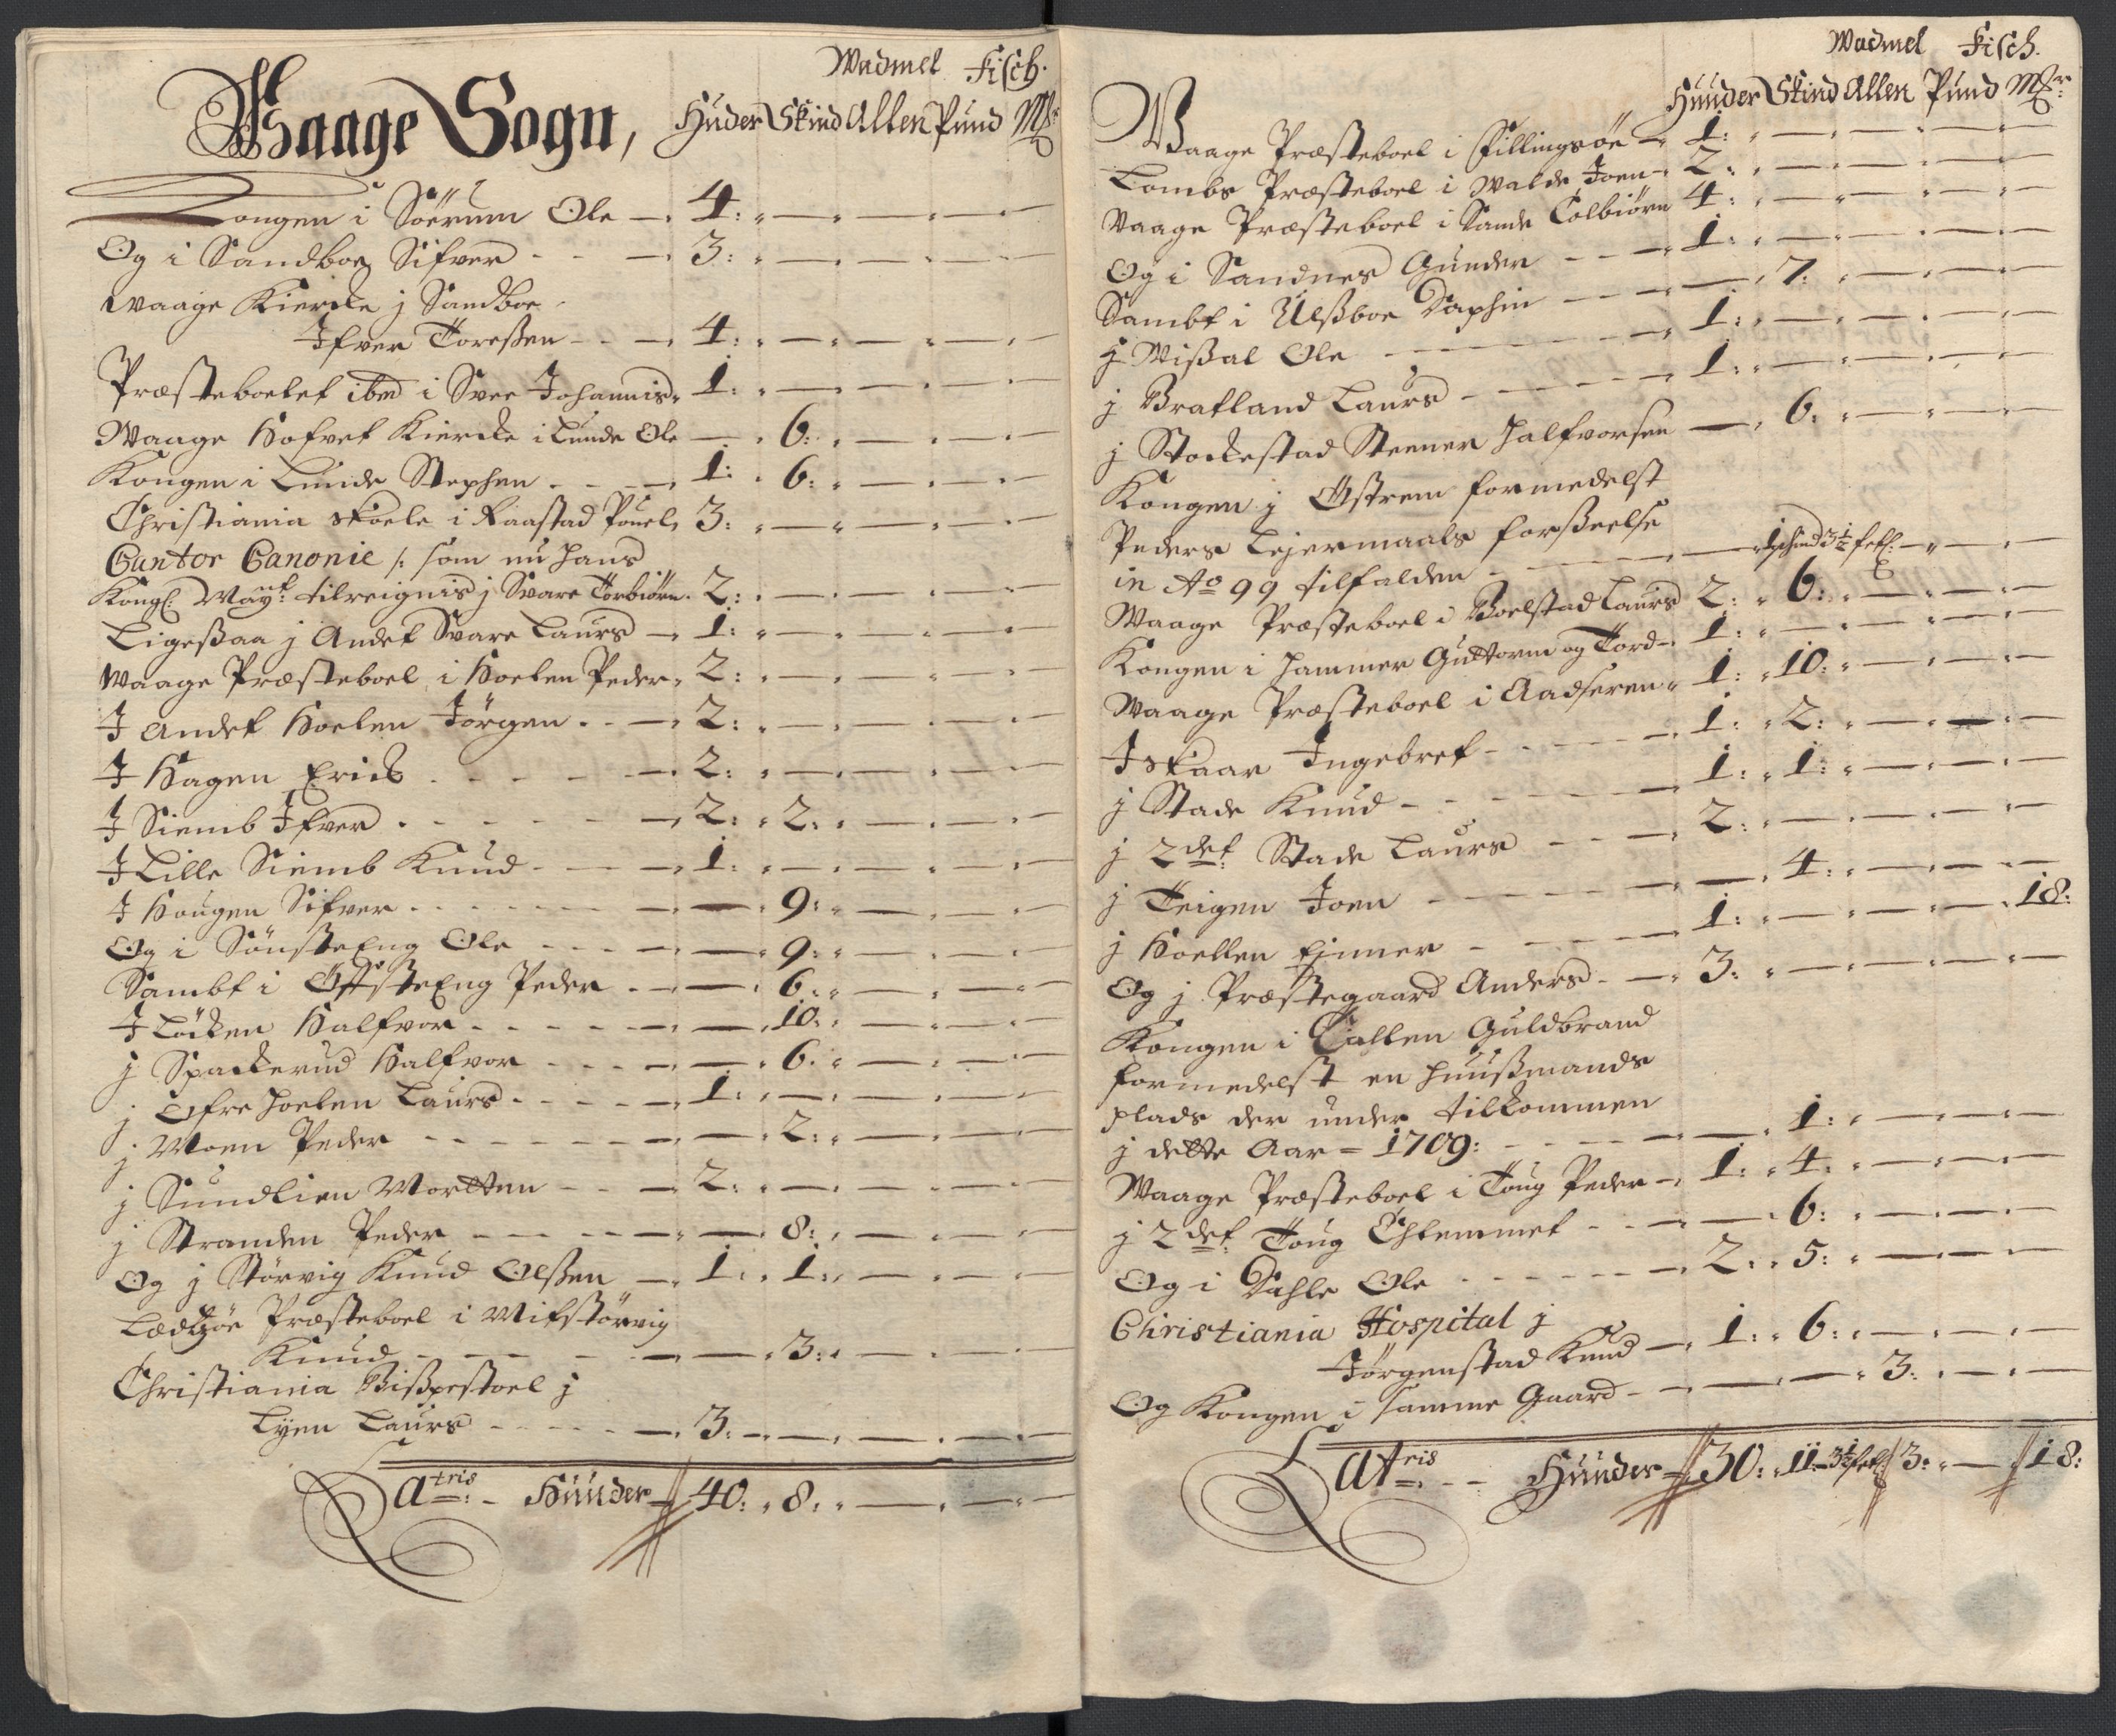 Wadmel Fisch.
Waage Sogn, Huder Skind Allen Pund Mk
Kongen i Söerum Ole — 4:
Og i Sandboe Sifver - - — 3:
Waage Kiercke j Sandboe
Ifver Toreßen - - — 4:
Præsteboelet ibm i Svee Johannis, 1:
Waage Hofvet Kiercke i Lunde Ole — 6:
Kongen i Lunde Stephen - - — 1: 6:
Christiania skoele i Raastad Pouel, 3:
Cantor Canonie /: som nu hans
Kongl: Mayt: tilreignis j Svare Torbiörn. 2:
Ligeßaa j Andet Svare Laurs — 1:
Waage Præsteboel i Hoelen Peder, 2:
I Andet Hoelen Jörgen - - — 2:
I Hagen Erick - - - — 2:
I Siemb Ifver - - - — 2: 2:
I Lille Siemb Knud - - — 1:
I Hougen Sifver - - - — 9:
Og i Sönsteeng Ole - - - — 9:
Sambt i Öfsteeng Peder - — 6:
I Löcken Halfvor - - - — 10:
j Spackerud Halfvor - - - — 6:
j Ofre Hoelen Laurs - - - — 1:
j Moen Peder - - - - — 2:
j Sundlien Mortten - - — 2:
j Stranden Peder - - - — 8:
Og j Störvig Knud Olßen — 1: 1:
Ledsöe Præsteboel i Mitstörvig
Knud - - - - — 3:
Christiania Bißpestoel j
Lyen Laurs - - - — 3:
Latris - Huuder 40: 8:
Wadmel Fisch.
Huuder Skind Allen Pund Mkr
Waage Præsteboel i Fillingsöe — 1:
Lombs Præsteboel i Walde Joen - 2:
Waage Præsteboel i Sande Tolbiörn 4:
Og i Sandnes Gunder - - — 1:
Sambt i Ulßboe Daphin - - — 7:
j Wißal Ole - - - - — 1:
j Bratland Laurs - - - - — 1:
j Stockestad Steener Halfvorsen — 6:
Kongen j Östrem formedelst
Peders Lejermaals forßeelse
in Ao 99 tilfalden - - — 1 schind 3½ fetl:
Waage Præsteboel i Boelstad Laurs 2: 6:
Kongen i Hammer Guttorm og Tord - 1:
Waage Præsteboel i Aadseren 1: 10:
I Skaar Ingebret - - - — 1: 2:
j Stade Knud - - - - — 1: 1:
j 2det Stade Laurs - - — 2:
j Teigen Joen - - - - — 4:
j Hoellen Ejnner - - - — 1: 18:
Og j Præstegaard Anders - — 3:
Kongen i Callen Guldbrand
formedelst en huußmands
plads der under tilkommen
j dette Aar = 1709: - - - — 1:
Waage Præsteboel i Toug Peder — 1: 4:
j 2det Toug Chlemmet - - — 6:
Og i Dahle Ole - - - — 2: 5:
Christiania Hospital j
Jörgenstad Knud — 1: 6:
Og Kongen i samme Gaard - — 3:
Latris - - Huuder 30: 11 - 3½ fetl: 3: — 18: